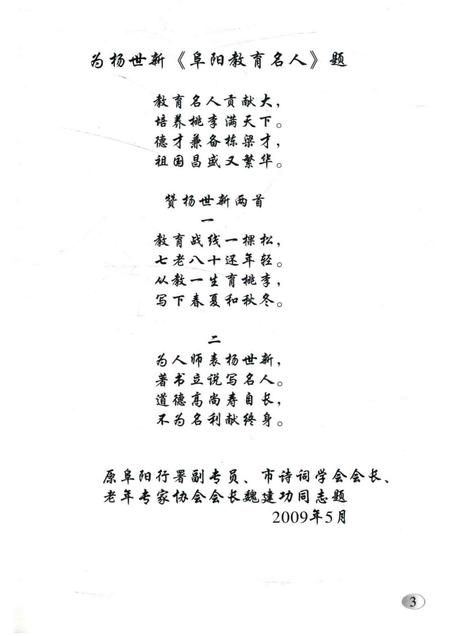 为杨世新《阜阳教育名人》题
教育名人贡献大，
培养桃李满天下。
德才兼备栋梁才，
祖国昌盛又繁华。
赞杨世新两首
一
教育战线一棵松，
七老八十还年轻。
从教一生育桃李，
写下春夏和秋冬。
二
为人师表杨世新，
著书立说写名人。
道德高尚寿自长，
不为名利献终身。
原阜阳行署副专员、市诗词学会会长、
老年专家协会会长魏建功同志题
2009年5月
3